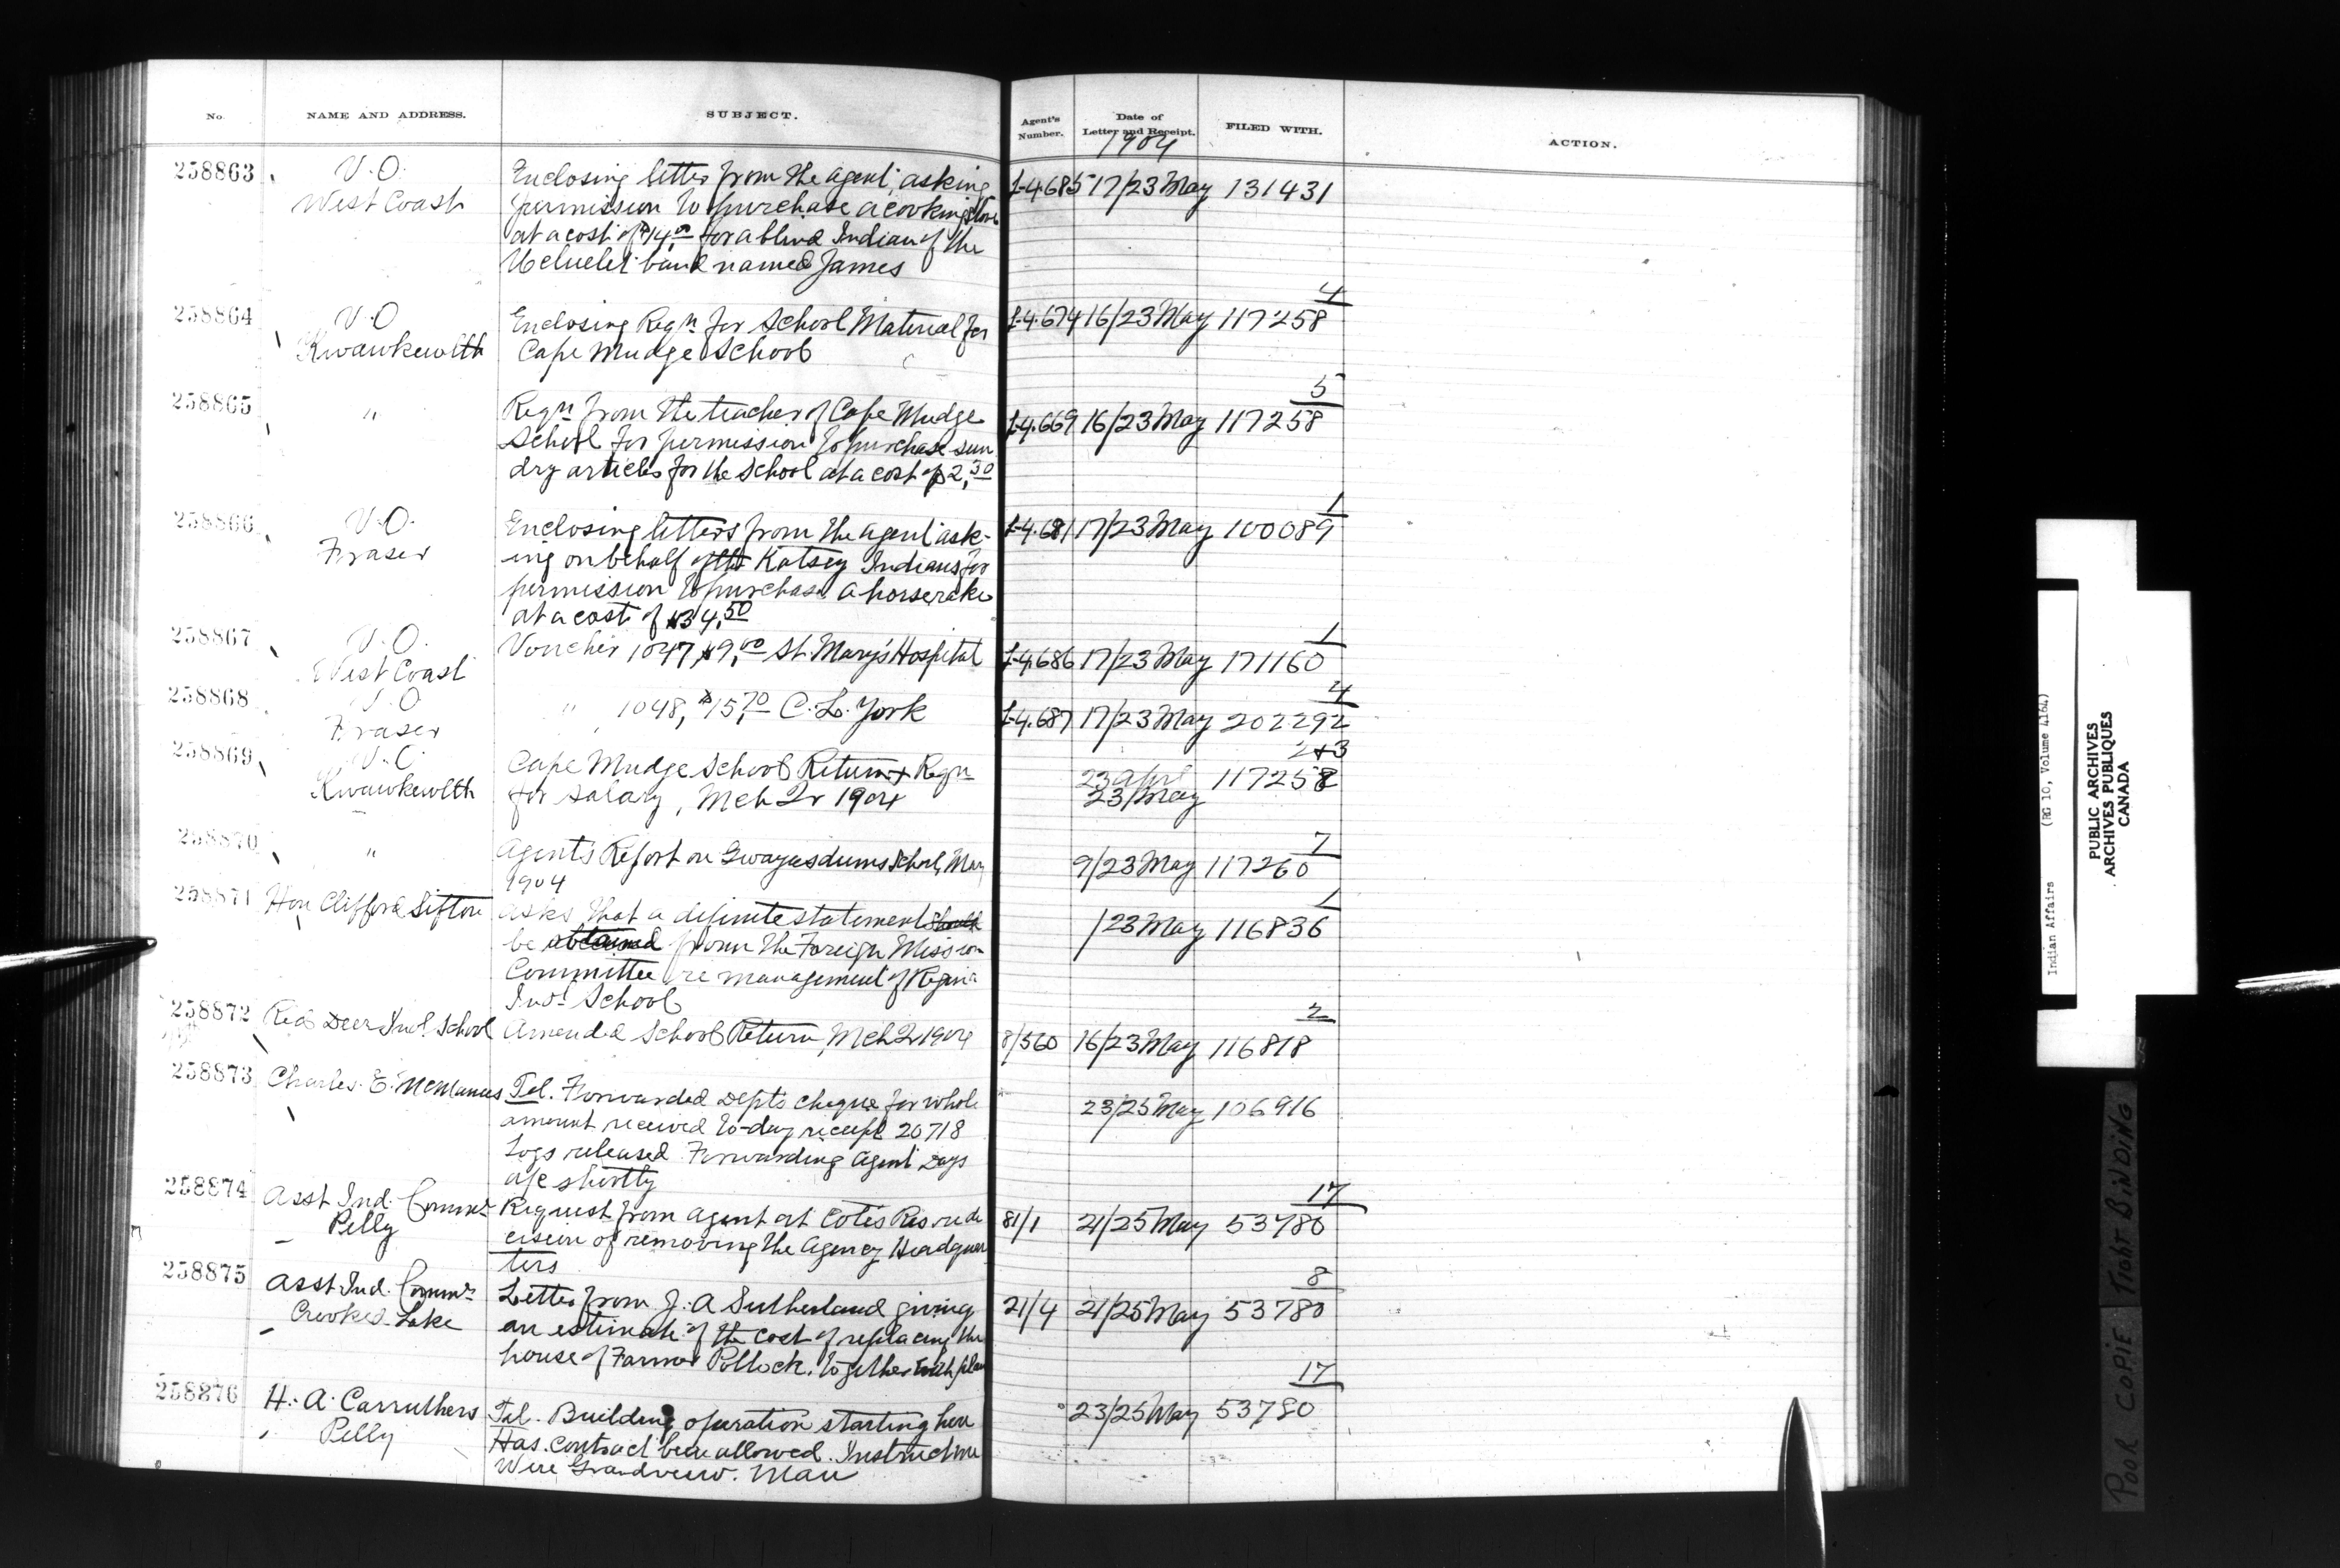 No. NAME AND ADDRESS. SUBJECT. Agent's Number. Date of Letter and Receipt. FILED WITH. ACTION.
1904
258863 V.O. Enclosing letter from the agent, asking L-4.685 17/23 May 131431
West Coast permission to purchase a cooking stove
at a cost of $14.00 for a blind Indian of the
Ucluelet band named James
4
258864 V.O Enclosing Reqn for School Material for L-4.674 16/23 May 117258
Kwawkewlth Cape Mudge School
5
258865 " Reqn from the teacher of Cape Mudge L-4.669 16/23 May 117258
School for permission to purchase sun
dry articles for the School at a cost of $2.30
1
258866 V.O. Enclosing letters from the agent ask- L-4.681 17/23 May 100089
Fraser ing on behalf of the Katsey Indians for
permission to purchase a horserake
at a cost of $34.50
1
258867 V.O. Voucher 1047, $9.00 St. Mary's Hospital L-4.686 17/23 May 171160
West Coast
4
258868 V.O " 1048, $15.70 C. L. York L-4.687 17/23 May 202292
Fraser
2+3
258869 V.O. Cape Mudge School Return & Reqn 23 April 117258
Kwawkewlth for salary, Mch 2r 1904 23/May
7
258870 " Agent's Report on Gwayasdums School, Mar 9/23 May 117260
1904
1
258871 Hon Clifford Sifton asks that a definite statement should /23 May 116836
be obtained from the Foreign Mission
Committee re management of Regina
Indl School
2
258872 Red Deer Indl. School Amended School Return, Mch 2r 1904 8/560 16/23 May 116818
258873 Charles. E. McManus Tel. Forwarded Depts cheque for whole 23/25 May 106916
amount received to-day receipt 20718
Logs released. Forwarding Agent Days
a/c shortly
17
258874 Asst Ind. Commr Request from agent at Cotes Res re de 81/1 21/25 May 53780
Pelly cision of removing the Agency Headquar
ters
8
258875 Asst Ind. Commr Letter from J. A Sutherland giving 21/4 21/25 May 53780
Crooked Lake an estimate of the cost of replacing the
house of Farmer Pollock. together with plan
17
258876 H. A. Carruthers Tel. Building operation starting here 23/25 May 53780
Pelly Has contract been allowed. Instructions
Wire Grandview. Man
Indian Affairs (RG 10, Volume 4164)
PUBLIC ARCHIVES
ARCHIVES PUBLIQUES
CANADA
POOR COPIE TIGHT BINDING